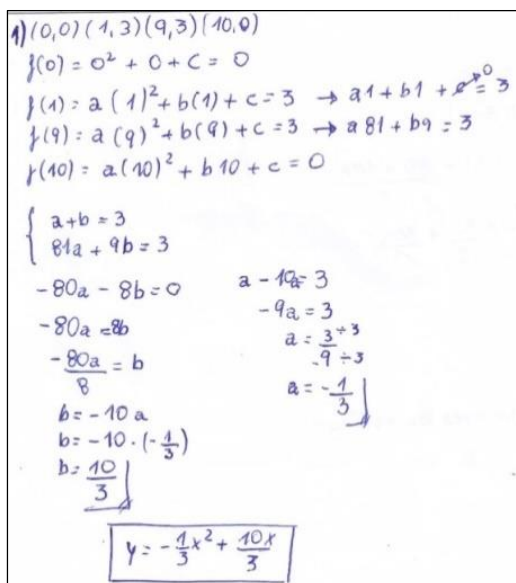 1) (0,0) (1,3) (9,3) (10,0)
f(0) = 0² + 0 + c = 0
f(1) = a(1)² + b(1) + c = 3 → a1 + b1 + c⁰ = 3
f(9) = a(9)² + b(9) + c = 3 → a81 + b9 = 3
f(10) = a(10)² + b10 + c = 0
{ a+b = 3
81a + 9b = 3
-80a - 8b = 0
-80a = 8b
-80a/8 = b
b = -10a
b = -10 · (-1/3)
b = 10/3
a - 10a = 3
-9a = 3
a = 3÷3/-9÷3
a = -1/3
y = -1/3x² + 10x/3